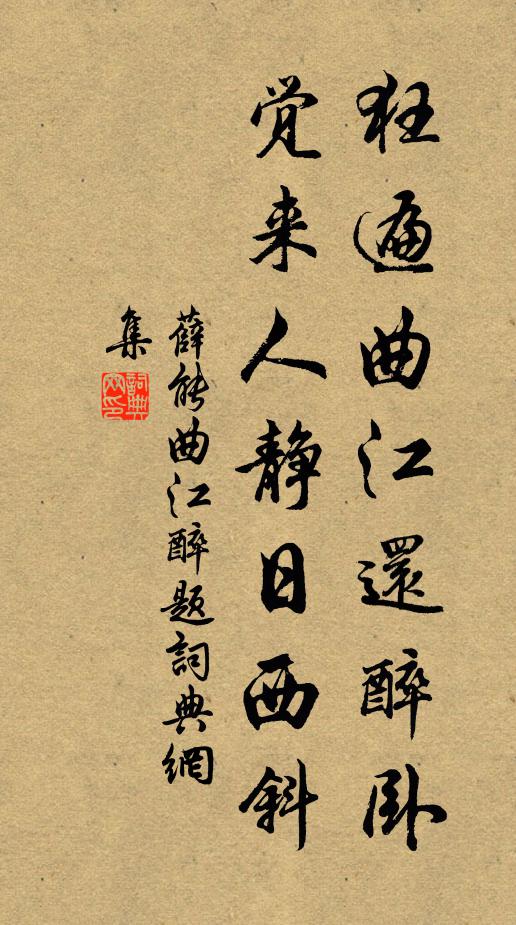 狂遍曲江還醉卧
觉来人静日西斜
薛能曲江醉题詞典網
集
詞典
网印